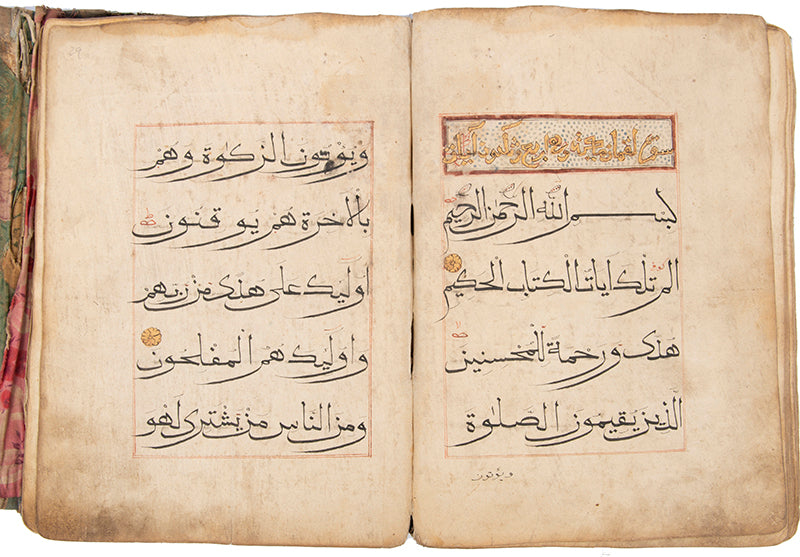 سورة لقمان مكية وهي اربع وثلثون آية
بسم الله الرحمن الرحيم
الم تلك ايات الكتاب الحكيم
هدى ورحمة للمحسنين
الذين يقيمون الصلوة
ويؤتون
29
ويؤتون الزكوة وهم
بالآخرة هم يوقنون
اولئك على هدى من ربهم
واولئك هم المفلحون
ومن الناس من يشترى لهو